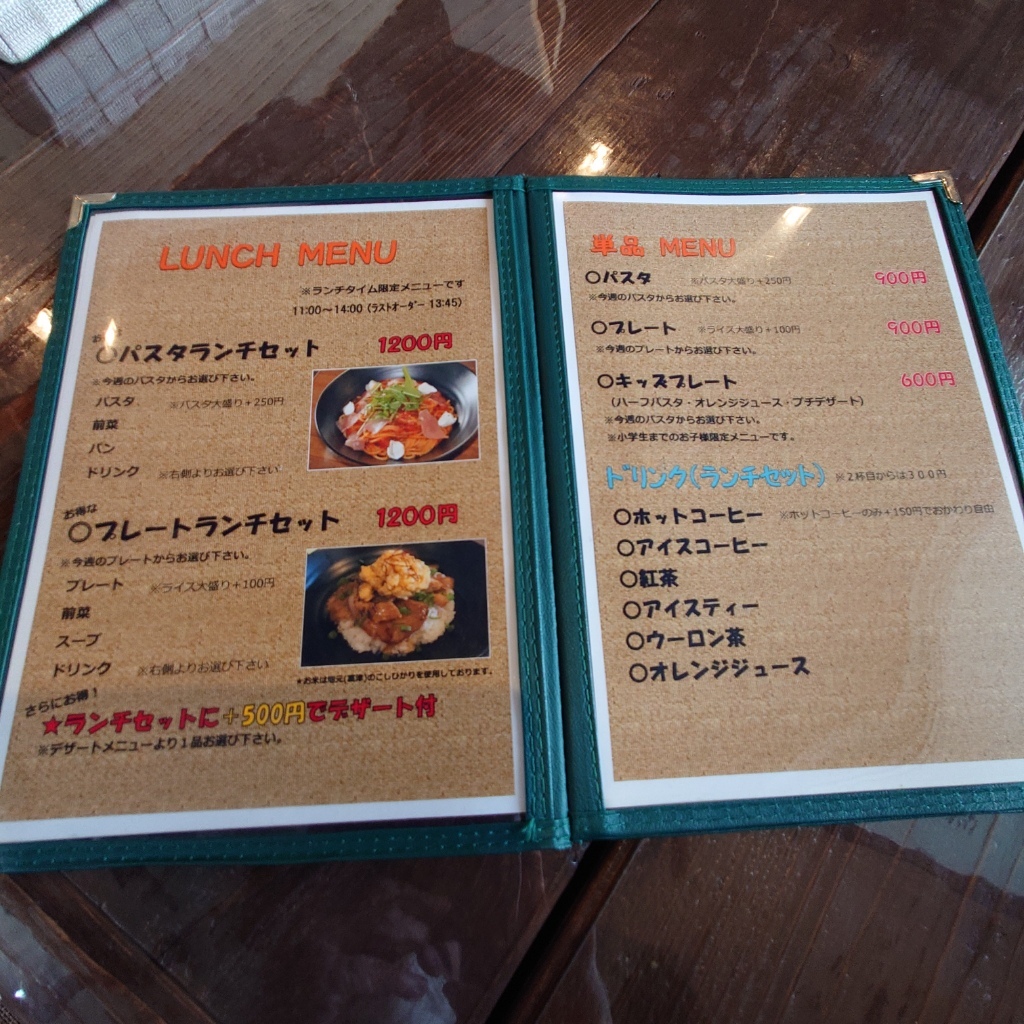 LUNCH MENU
※ランチタイム限定メニューです
11:00～14:00 (ラストオーダー 13:45)
〇パスタランチセット 1200円
※今週のパスタからお選び下さい。
パスタ ※パスタ大盛り＋250円
前菜
パン
ドリンク ※右側よりお選び下さい
お得な
〇プレートランチセット 1200円
※今週のプレートからお選び下さい。
プレート ※ライス大盛り＋100円
前菜
スープ
ドリンク ※右側よりお選び下さい
★お米は地元(高津)のこしひかりを使用しております。
さらにお得！
★ランチセットに＋500円でデザート付
※デザートメニューより１品お選び下さい。
単品 MENU
〇パスタ ※パスタ大盛り＋250円 900円
※今週のパスタからお選び下さい。
〇プレート ※ライス大盛り＋100円 900円
※今週のプレートからお選び下さい。
〇キッズプレート 600円
（ハーフパスタ・オレンジジュース・プチデザート）
※今週のパスタからお選び下さい。
※小学生までのお子様限定メニューです。
ドリンク(ランチセット) ※２杯目からは３００円
〇ホットコーヒー ※ホットコーヒーのみ＋150円でおかわり自由
〇アイスコーヒー
〇紅茶
〇アイスティー
〇ウーロン茶
〇オレンジジュース